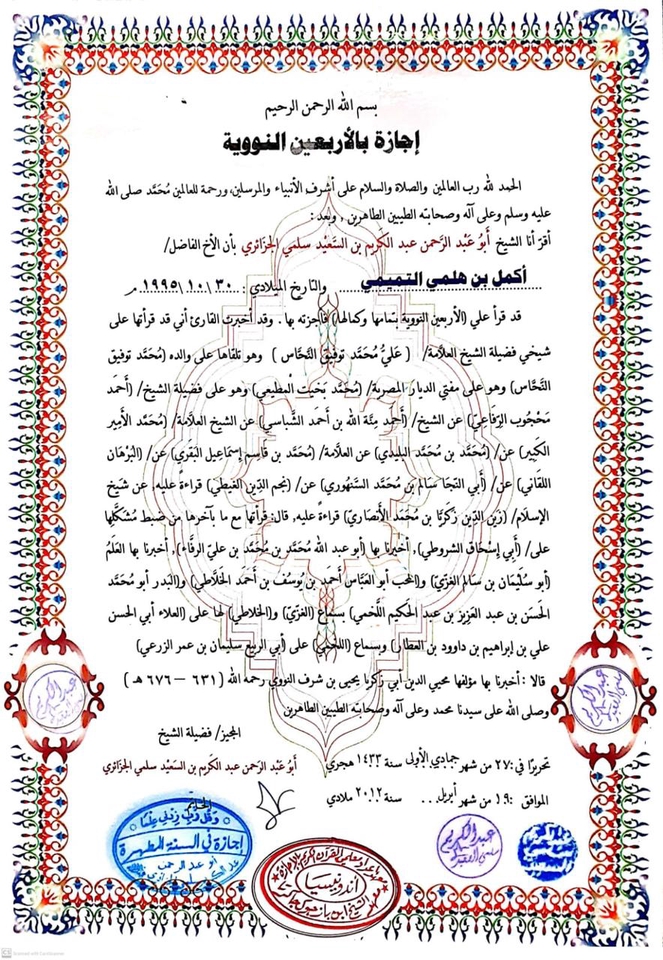 بسم الله الرحمن الرحيم
إجازة بالأربعين النووية
الحمد لله رب العالمين والصلاة والسلام على أشرف الأنبياء والمرسلين، ورحمة للعالمين مُحَمَّد صلى الله
عليه وسلم وعلى آله وصحابته الطيبين الطاهرين , وبعد :
أقرّ أنا الشيخ أَبُو عَبْد الرَّحمن عبد الكَرِيم بن السَّعَيْد سلمي الجَزَائري بأن الأخ الفاضل/
أكمل بن هلمي التميمي والتاريخ الميلادي : ٣٠\١٠\١٩٩٥ م
قد قرأ علي (الأربعين النووية بتمامها وكمالها) فأجزته بها . وقد أخبرت القارئ أني قد قرأتها على
شيخي فضيلة الشيخ العلامة/ ( عَليُّ مُحَمَّد توفيق النَّحَّاس ) وهو تلقاها على والده (مُحَمَّد توفيق
النَّحَّاس) وهو على مفتي الديار المصرية/ (مُحَمَّد بَخيت المطيعي) وهو على فضيلة الشيخ/ (أحمَد
مَحْجُوب الرّفَاعيّ) عن الشيخ/ (أَحمَد مِنَّة الله بن أحمَد الشَّباسي) عن الشيخ العلامة/ (مُحَمَّد الأمِير
الكَبير) عن/ (مُحَمَّد بن مُحَمَّد البليدي) عن العلامة/ (مُحَمَّد بن قاسِم إسماعِيل البَقري) عن/ (البُرْهَان
اللقَاني) عن/ (أبي النَّجَا سَالم بن مُحَمَّد السَّنهُوري) عن/ (نجم الدّين الغيطي) قراءةً عليه, عن شَيخ
الإسلام/ (زَين الدّين زَكَريّا بن مُحَمَّد الأنْصَاريّ) قراءةً عليه, قال: قرأتها مع ما بآخرها من ضبط مُشكَلِها
على/ (أَبي إسْحَاق الشروطي), أخبرنا بها (أبو عبد الله مُحَمَّد بن مُحَمَّد بن عليّ الرفَّاء), أخبرنا بها العَلَمُ
(أبو سُلَيْمَان بن سَالم الغزّيّ) والمحب أبو العَبَّاس أَحمَد بن يُوسُف بن أحْمَد الخَلَاطي) والبَدر أبو مُحَمَّد
الحَسَن بن عبد العَزِيز بن عبد الحكيم اللَّخمي) بسماع (الغزيّ) و(الخلاطي) لها على (العلاء أبي الحسن
علي بن إبراهيم بن داوود بن العطار) وبسماع (اللخمي) على (أبي الربيع سليمان بن عمر الزرعي)
قالا : أخبرنا بها مؤلفها محيي الدين أبي زكريا يحيى بن شرف النووي رحمه الله (٦٣١ – ٦٧٦ هـ )
وصلى الله على سيدنا محمد وعلى آله وصحابته الطيبين الطاهرين
المجيز/ فضيلة الشيخ
تحريرًا في: ٢٧ من شهر جمادي الأولى سنة ١٤٣٣ هجري
أبُو عَبْد الرَّحمن عبد الكَرِيم بن السَعَيْد سلمي الجَزَائري
الموافق : ١٩ من شهر أبريل... سنة ٢٠١٢ ملادي
الخاتم
وقل رب زدني علما
إجازة في السنة المطهرة
أبو عبد الرحمن
عبد الكريم
أندونيسيا
عبد الكريم
عبد الكريم
عبد الكريم